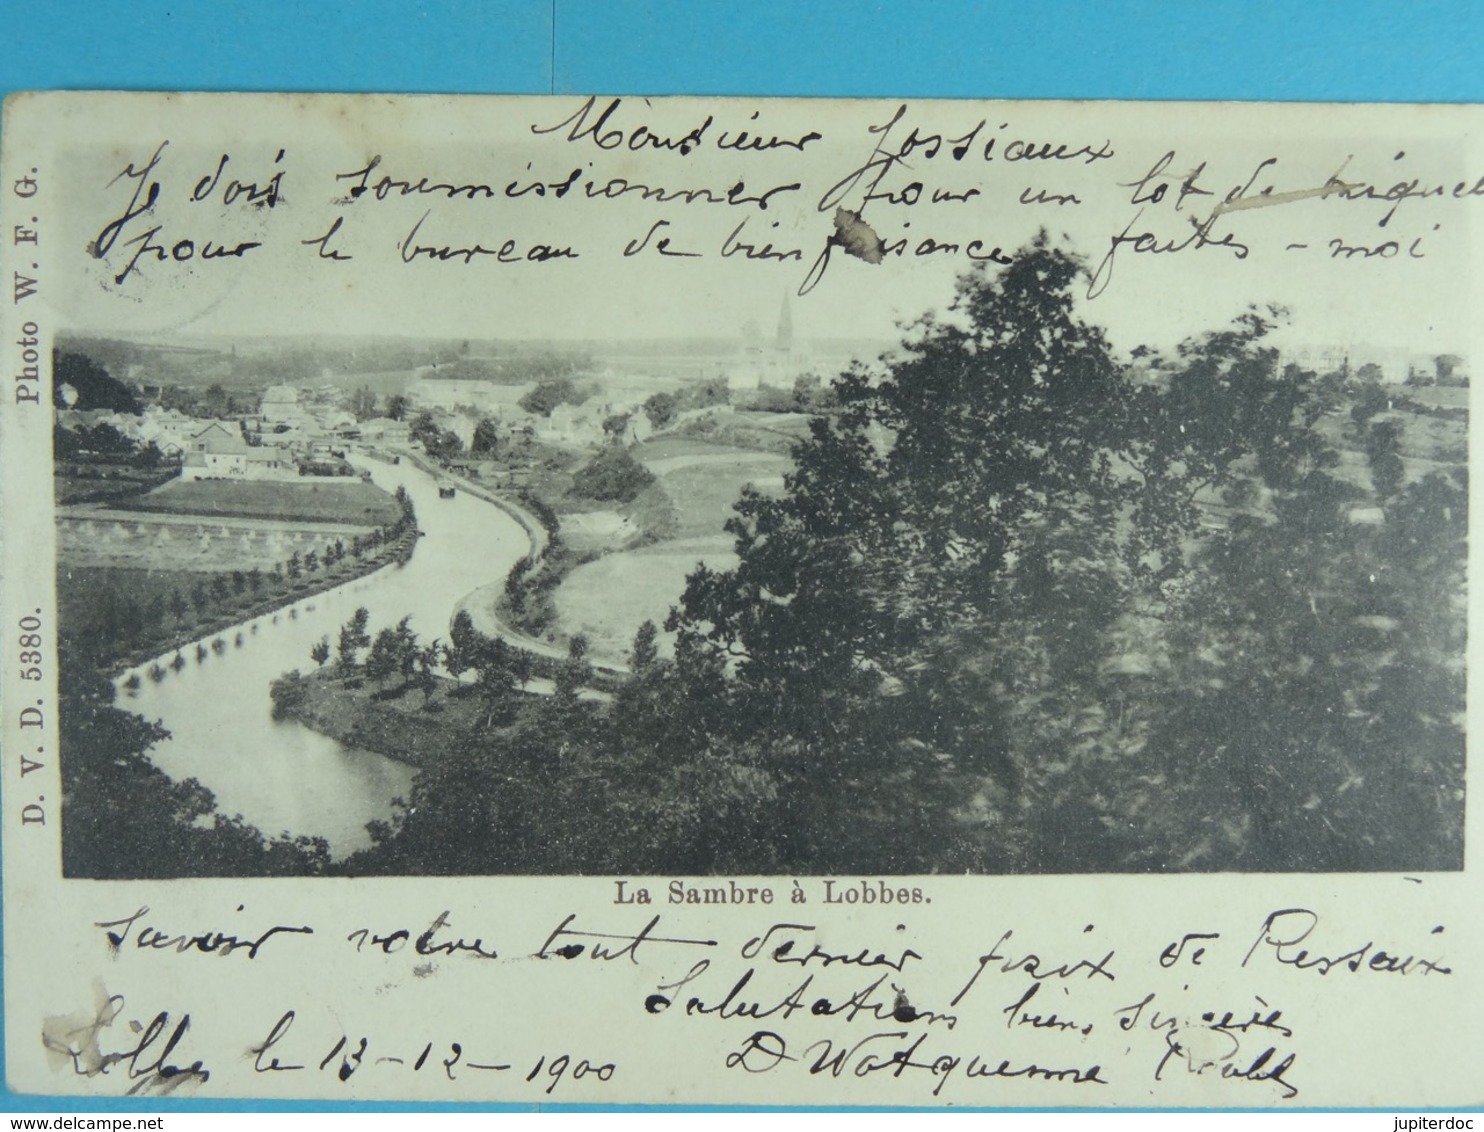 Monsieur Jossiaux
Je dois soumissionner pour un lot de briquet
pour le bureau de bienfaisance faites-moi
Photo W. F. G.
D. V. D. 5380.
La Sambre à Lobbes.
savoir votre tout dernier prix de Ressaix
Salutations bien sincères
Lobbes le 13-12-1900 D Watquenne
delcampe.net
jupiterdoc